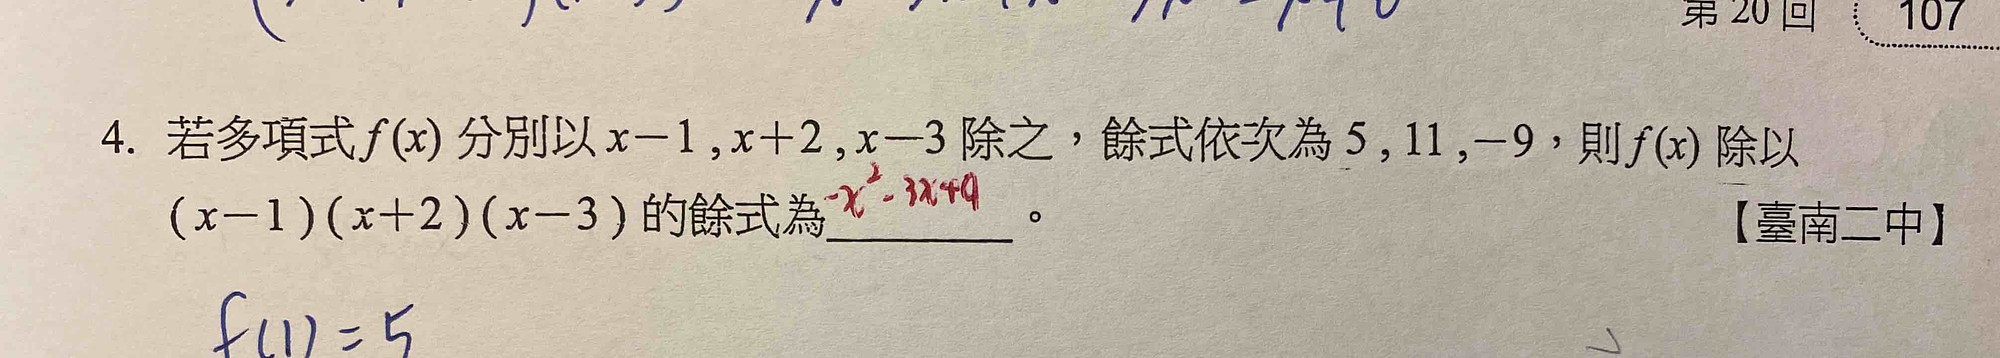 第 20 回 107
4. 若多項式 f(x) 分別以 x－1 , x＋2 , x－3 除之，餘式依次為 5 , 11 ,－9，則 f(x) 除以
(x－1)(x＋2)(x－3) 的餘式為 -x²-3x+9 。 【臺南二中】
f(1)=5